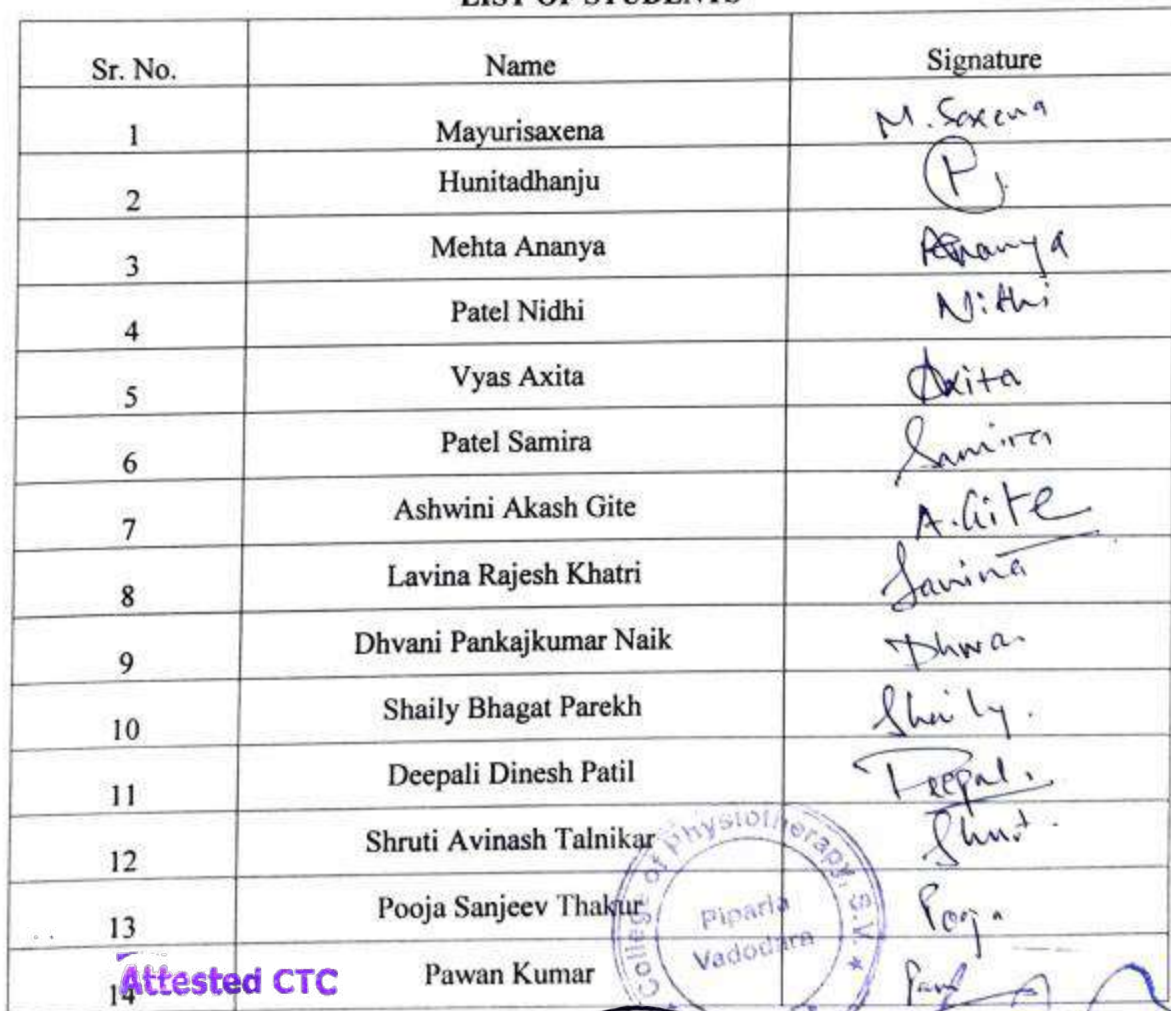 LIST OF STUDENTS
Sr. No. Name Signature
1 Mayurisaxena M. Saxena
2 Hunitadhanju
3 Mehta Ananya Ananya
4 Patel Nidhi Nithi
5 Vyas Axita Axita
6 Patel Samira Samira
7 Ashwini Akash Gite A. Gite
8 Lavina Rajesh Khatri Lavina
9 Dhvani Pankajkumar Naik
10 Shaily Bhagat Parekh Shaily.
11 Deepali Dinesh Patil Deepali
12 Shruti Avinash Talnikar
13 Pooja Sanjeev Thakur Pooja
14 Pawan Kumar
Attested CTC
College of Physiotherapy, S.V.
Piparia
Vadodara